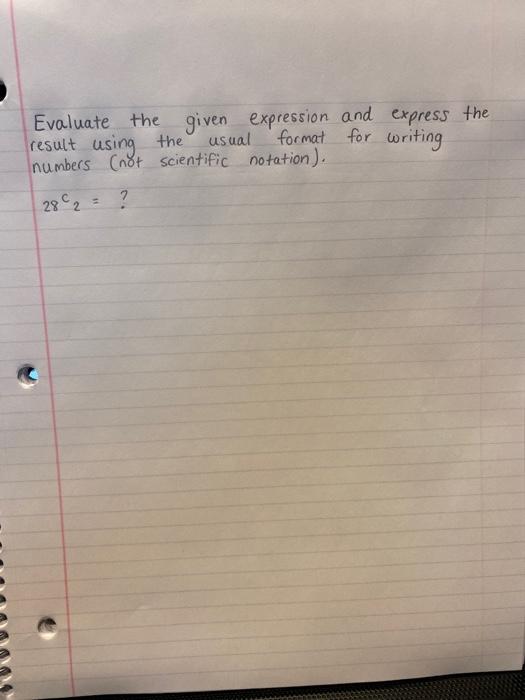 Evaluate the given expression and express the
result using the usual format for writing
numbers (not scientific notation).
28C2 = ?